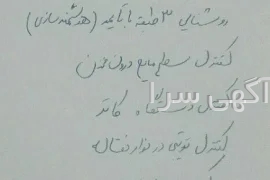 روشنایی ۳ طبقه با تایمر (هوشمندسازی)
کنترل سطح مایع درون مخزن
کنترل دستگاه
کنترل توتی در نوار نقاله
آگهی سرا